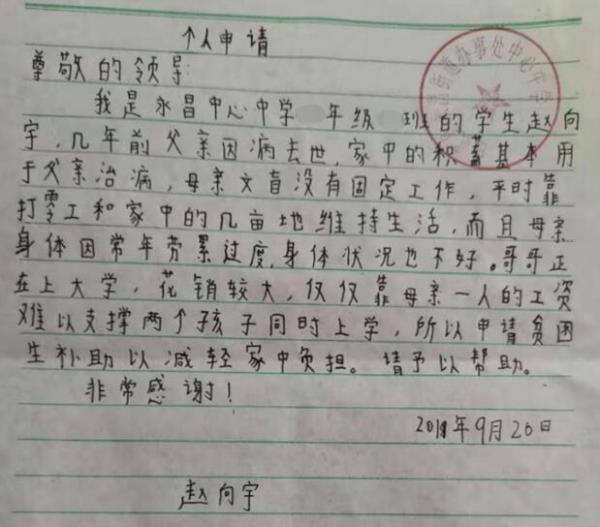 个人申请
尊敬的领导:
我是永昌中心中学 年级 班的学生赵向
宇,几年前父亲因病去世,家中的积蓄基本用
于父亲治病,母亲文盲没有固定工作,平时靠
打零工和家中的几亩地维持生活,而且母亲
身体因常年劳累过度,身体状况也不好。哥哥正
在上大学,花销较大,仅仅靠母亲一人的工资
难以支撑两个孩子同时上学,所以申请贫困
生补助以减轻家中负担。请予以帮助。
非常感谢!
年9月20日
赵向宇
办事处中心中学